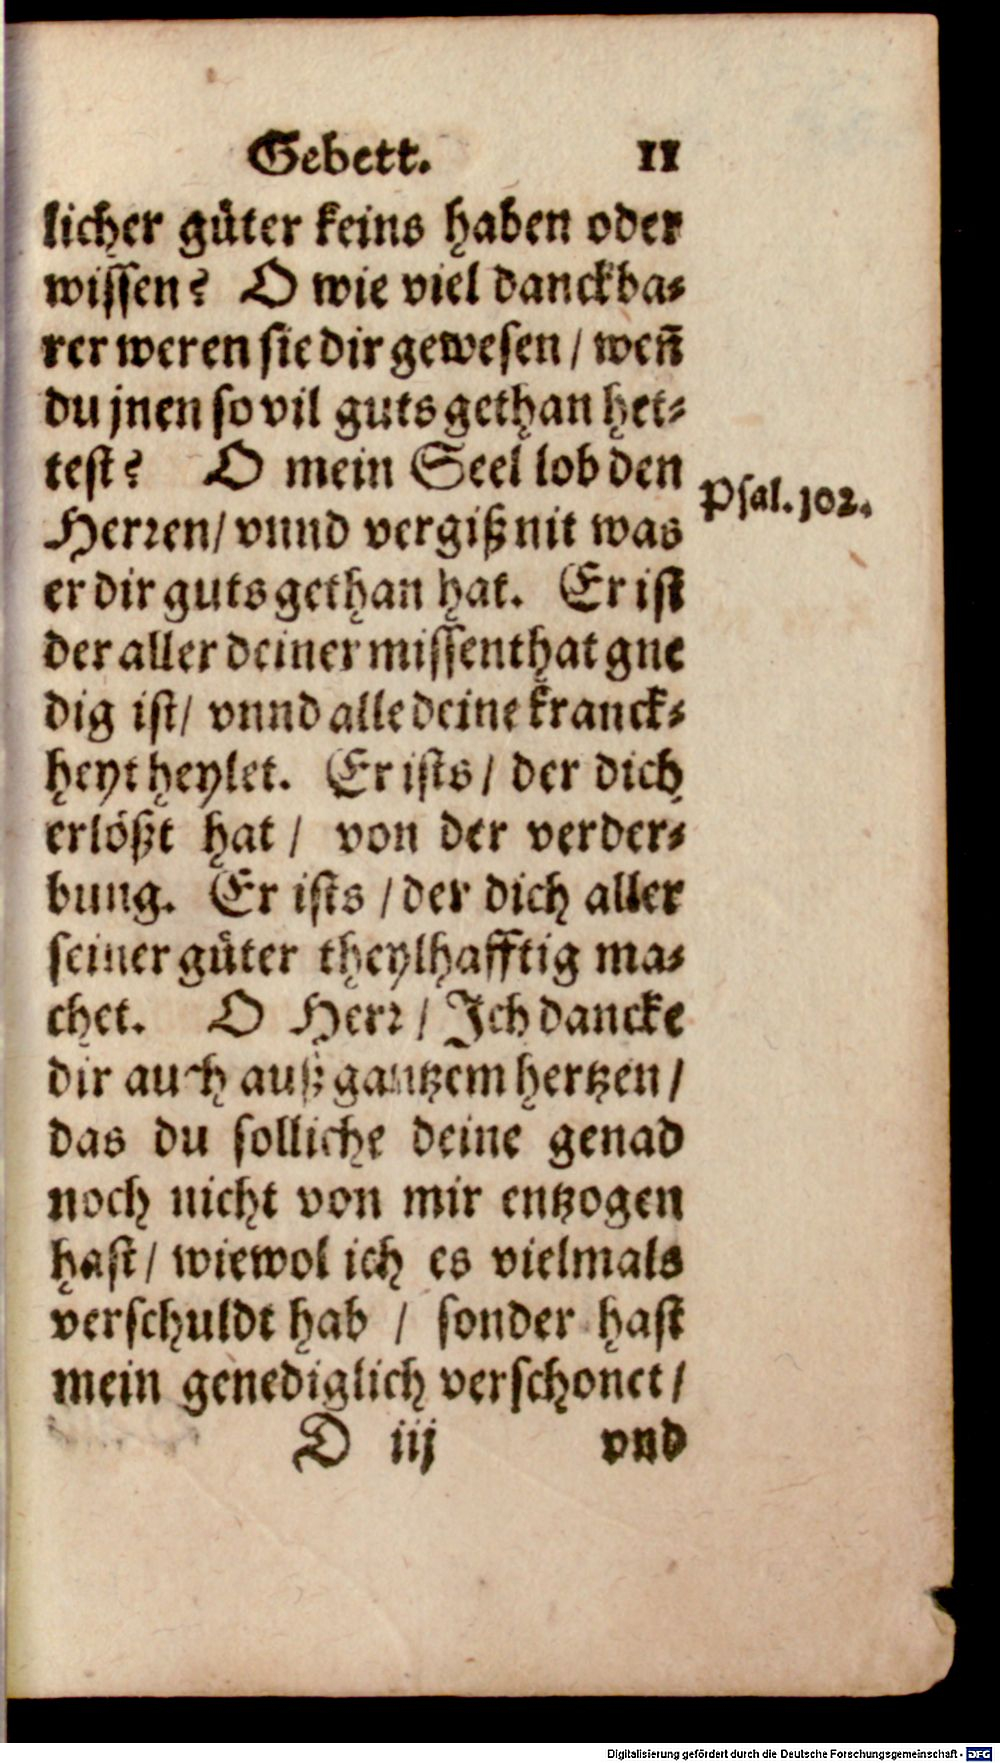 Gebett. 11
licher güter keins haben oder
wissen? O wie viel danckba⸗
rer weren sie dir gewesen / weñ
du jnen so vil guts gethan het⸗
test? O mein Seel lob den
Psal. 102.
Herren / vnnd vergiß nit was
er dir guts gethan hat. Er ist
der aller deiner missenthat gne
dig ist / vnnd alle deine kranck⸗
heyt heylet. Er ists / der dich
erlößt hat / von der verder⸗
bung. Er ists / der dich aller
seiner güter theylhafftig ma⸗
chet. O Herr / Ich dancke
dir auch auß gantzem hertzen /
das du solliche deine genad
noch nicht von mir entzogen
hast / wiewol ich es vielmals
verschuldt hab / sonder hast
mein genediglich verschonet /
D iij vnd
Digitalisierung gefördert durch die Deutsche Forschungsgemeinschaft - DFG